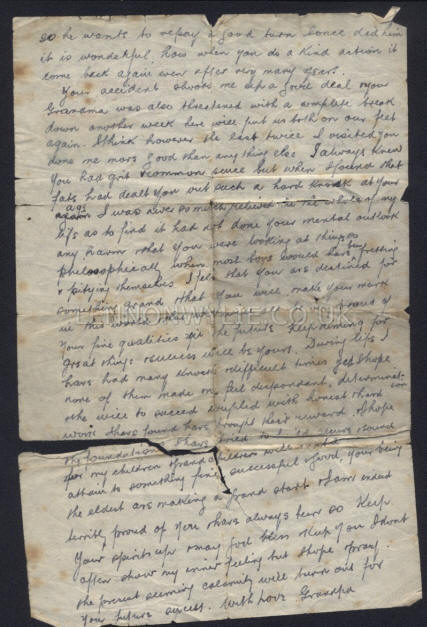 so he wants to repay a good turn I once did him
it is wonderful how when you do a kind action it
come back again even after very many years.
Your accident shook me up a good deal & your
Grandma was also threatened with a complete break
down another week here will put us both on our feet
again. I think however the last twice I visited you
done me more good than anything else I always knew
you had grit & common sense but when I found that
fate had dealt you out such a hard knock at your
age I was never so much relieved in the whole of my
life as to find it had not done your mental outlook
any harm & that you were looking at things so
philosophically when most boys would have been fretting
& pitying themselves I feel that you are destined for
something grand & that you will make your mark
in this world proud of
your fine qualities in the future keep aiming for
great things & success will be yours. During life I
have had many & difficult times yet I hope
none of them made me feel despondent, determination
& the will to succeed coupled with honest hard
work I have found have brought their reward & I hope
the foundations I have tried to round
for my children & grandchildren will
attain to something & successful & you being
the eldest are making a grand start & I am indeed
terribly proud of you & have always been so Keep
your spirits up & may God bless & keep you I dont
often show my inner feeling but I hope & pray
the present seeming calamity will turn out for
your future success. With love Grandpa
ETINONWHITE.CO.UK